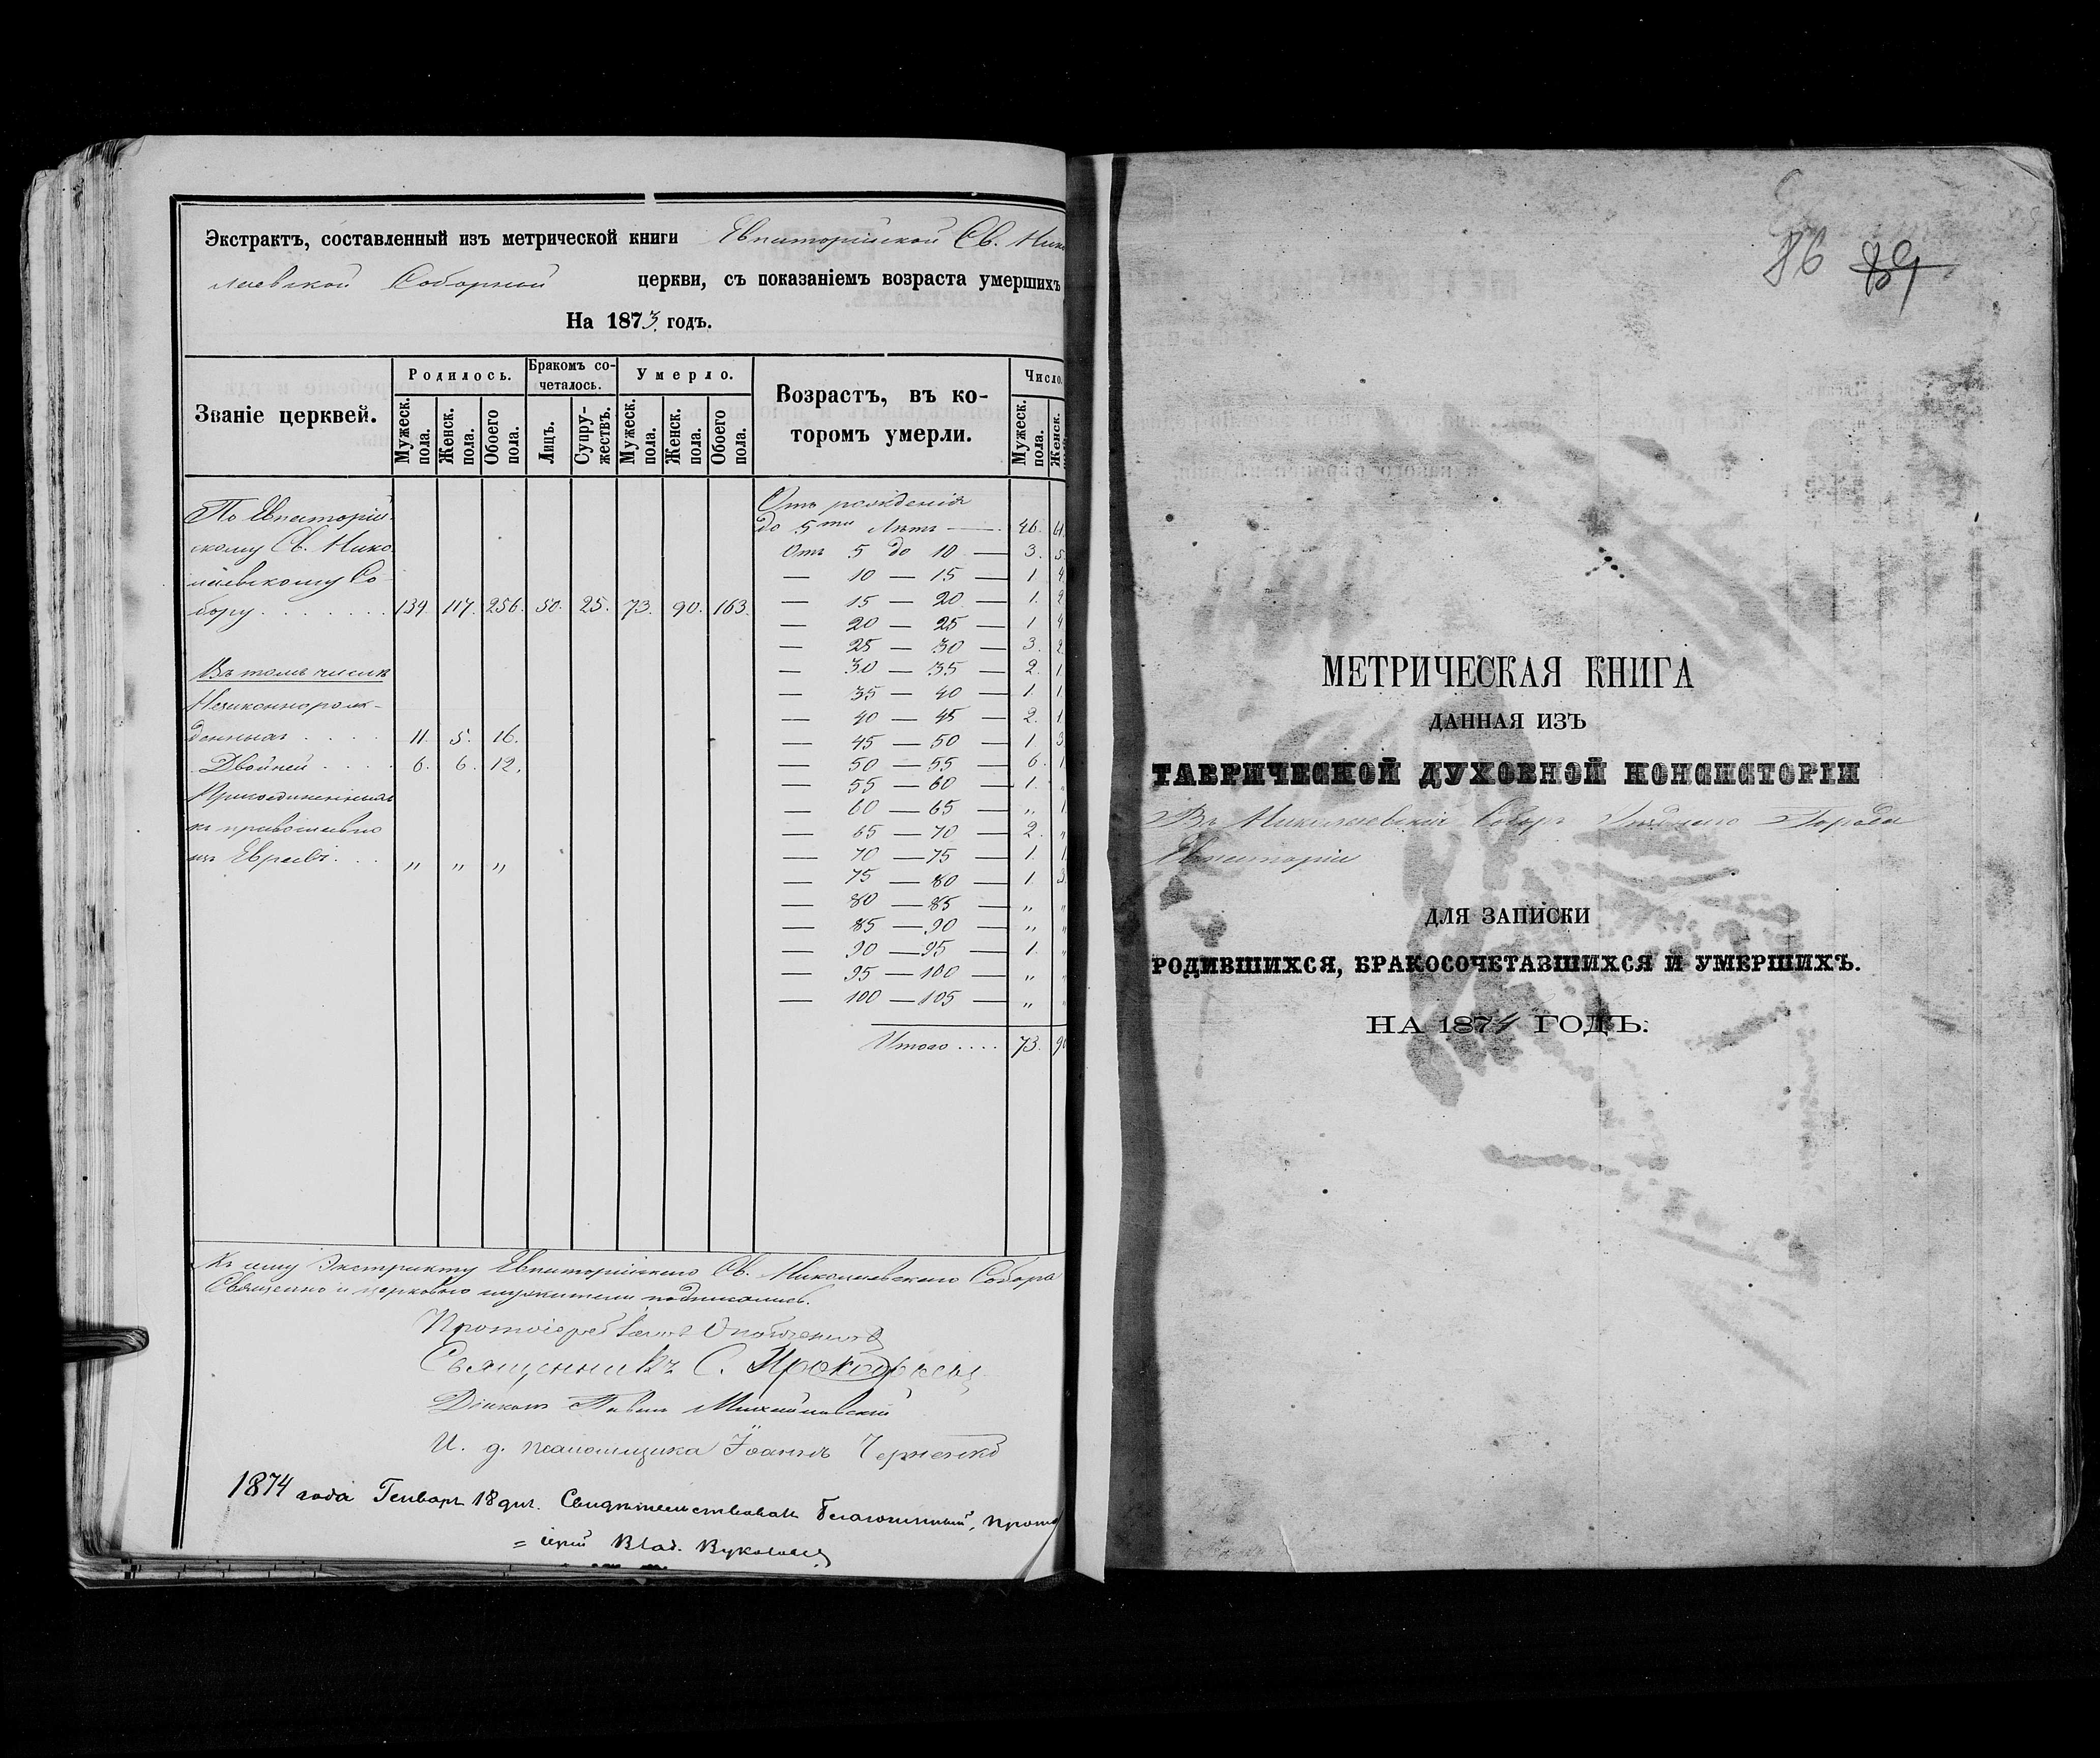 Экстрактъ, составленный изъ метрической книги Евпаторійской Св. Нико
лаевской Соборной церкви, съ показаніемъ возраста умершихъ
На 1873 годъ.
Званіе церквей.
Родилось.
Бракомъ со-
четалось.
Умерло.
Возрастъ, въ ко-
торомъ умерли.
Число.
Мужеск. пола.
Женск. пола.
Обоего пола.
Лицъ.
Супру-
жествъ.
Мужеск. пола.
Женск. пола.
Обоего пола.
Мужеск. пола.
Женск.
По Евпаторій-
скому Св. Нико
лаевскому Со-
бору . . . . . . . 139. 117. 256. 50. 25. 73. 90. 163.
Въ томъ числѣ
Незаконнорож-
денныхъ . . . . 11. 5. 16.
Двойней . . . . 6. 6. 12.
Присоединенныхъ
къ православію
изъ Евреевъ . . . „ „ „
Отъ рожденія
до 5ти лѣтъ — 46. 61.
Отъ 5 до 10 — 3. 5.
— 10 — 15 — 1. 4.
— 15 — 20 — 1. 2.
— 20 — 25 — 1 4.
— 25 — 30 — 3. 2.
— 30 — 35 — 2. 1.
— 35 — 40 — 1. 1.
— 40 — 45 — 2. 1.
— 45 — 50 — 1. 3.
— 50 — 55 — 6. 1.
— 55 — 60 — 1. „
— 60 — 65 — „ 1.
— 65 — 70 — 2. „
— 70 — 75 — 1. 1.
— 75 — 80 — 1. 3.
— 80 — 85 — „ „
— 85 — 90 — „ „
— 90 — 95 — 1. „
— 95 — 100 — „ „
— 100 — 105 — „ „
Итого . . . . 73. 90
Къ сему Экстракту Евпаторійскаго Св. Николаевскаго Собора
Священно и церковно служители подписались.
Протоіерей
Священникъ С. Прокофьевъ
Діаконъ Павелъ Михайловскій
И. д. псаломщика Іоаннъ Черненко
1874 года Генваря 18 дня. Свидѣтельствовалъ благочинный, прото
= іерей Влад. Вуколовъ
86 89
МЕТРИЧЕСКАЯ КНИГА
ДАННАЯ ИЗЪ
ТАВРИЧЕСКОЙ ДУХОВНОЙ КОНСИСТОРІИ
Въ Николаевскій Соборъ Уѣзднаго Города
Евпаторіи
ДЛЯ ЗАПИСКИ
РОДИВШИХСЯ, БРАКОСОЧЕТАВШИХСЯ И УМЕРШИХЪ.
НА 1874 ГОДЪ.